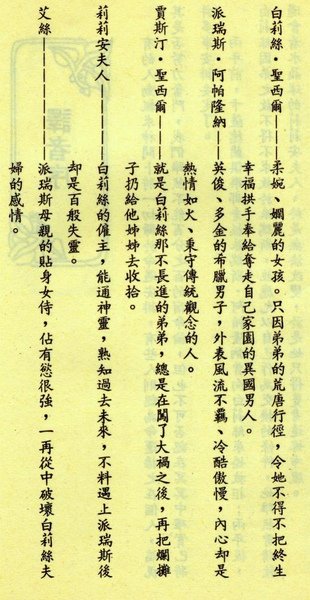 白莉絲‧聖西爾——柔婉、嫻麗的女孩。只因弟弟的荒唐行徑，令她不得不把終生
幸福拱手奉給奪走自己家園的異國男人。
派瑞斯‧阿帕隆納——英俊、多金的布臘男子，外表風流不羈、冷酷傲慢，內心却是
熱情如火、秉守傳統觀念的人。
賈斯汀‧聖西爾——就是白莉絲那不長進的弟弟，總是在闖了大禍之後，再把爛攤
子扔給他姊姊去收拾。
莉莉安夫人————白莉絲的僱主，能通神靈，熟知過去未來，不料遇上派瑞斯後
却是百般失靈。
艾絲——————派瑞斯母親的貼身女侍，佔有慾很強，一再從中破壞白莉絲夫
婦的感情。